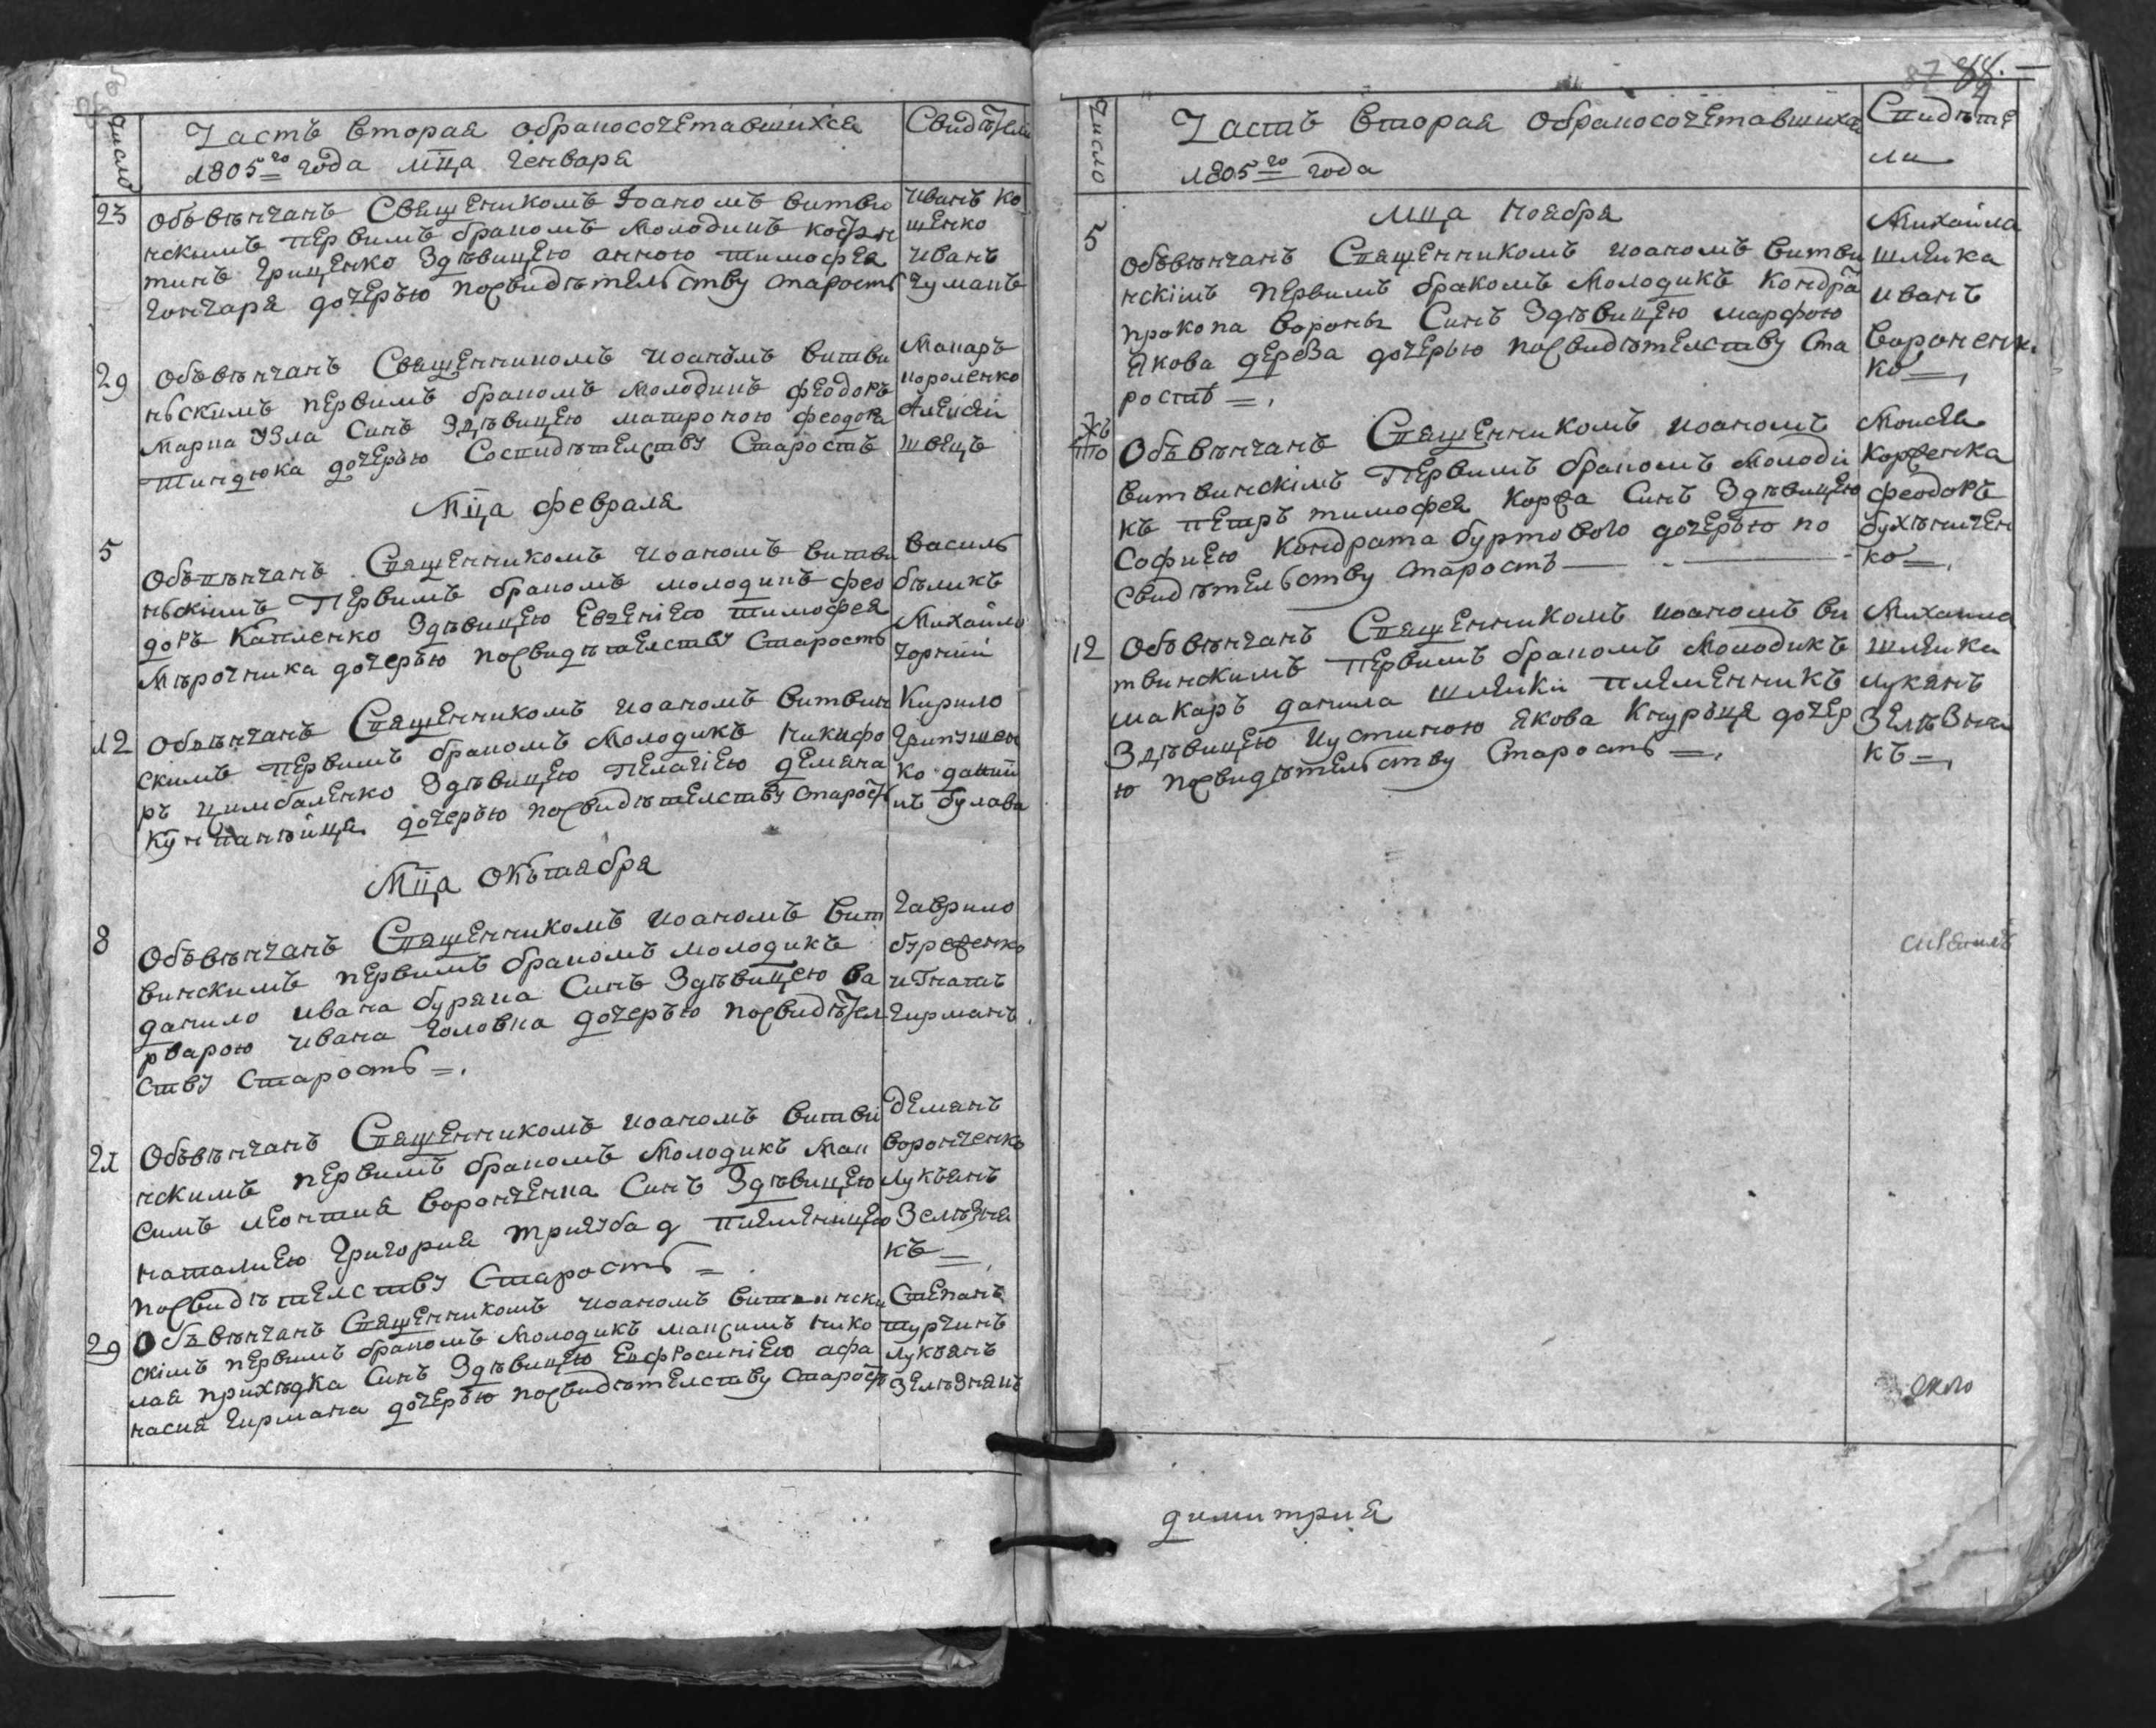 Число
Часть вторая обракосочетавшихся
1805го года мца генваря
Свидѣтели
23
Обвѣнчанъ Священикомъ Іоаномъ витви
нскимъ первимъ бракомъ молодикъ костян
тинъ Гриценко Здѣвицею анною тимофея
гончаря дочерью посвидѣтельству старость
Иванъ Ко
щенко
Иванъ
Чумакъ
29
Обвѣнчанъ Священникомъ иоаномъ витви
ньскимъ первимъ бракомъ молодикъ феодоръ
марка Узла Синъ Здѣвицею матроною феодора
тиндюка дочерью Сосвидѣтелству Старостъ
Макаръ
короленко
Алексѣй
швецъ
Мца февраля
5
Обвѣнчанъ Священникомъ иоаномъ витви
ньскімъ Первимъ бракомъ молодикъ фео
доръ Капленко Здѣвицею Евгеніею тимофея
Мѣрочника дочерью посвидѣтелству Старость
василь
бѣликъ
Михайло
чорний
12
Обвѣнчанъ Священникомъ иоаномъ витвин
скимъ первимъ бракомъ молодикъ никифо
ръ цимбаленко Здѣвицею пелагіею демяна
дочерью посвидѣтелству старость
Кирило
ко дании
лъ булава
Мца окътября
8
Обвѣнчанъ Священникомъ иоаномъ вит
винскимъ первимъ бракомъ молодикъ
данило ивана буряка Синъ Здѣвицею ва
рварою ивана головка дочерью посвидѣтел
ству Старость
гаврило
игнатъ
гирманъ
21
Обвѣнчанъ Священникомъ иоаномъ витви
нскимъ первимъ бракомъ молодикъ мак
симъ леонтия воронченка Синъ Здѣвицею
наталиею григория триязба д племеницею
посвидѣтелству Старость
демянъ
воронченко
лукъянъ
Зелѣзня
къ
29
Обвѣнчанъ Священникомъ иоаномъ витвински
скімъ первимъ бракомъ молодикъ максимъ нико
лая прихѣдка Синъ Здѣвицею Евфросиніею афа
насия гирмана дочерью посвидѣтелству старость
Степанъ
турчинъ
лукъянъ
Зелѣзнякъ
87 88
Число
Часть вторая обракосочетавшихся
1805го года
Свидѣте
ли
мца ноября
5
Обвѣнчанъ Священникомъ иоаномъ витви
нскімъ первимъ бракомъ молодикъ кондра
прокопа вороны Синъ Здѣвицею марфою
якова дереза дочерью посвидѣтелству ста
ростъ
Михайла
шлейка
иванъ
воронен
ко
Обвѣнчанъ Священникомъ иоаномъ
витвинскімъ Первимъ бракомъ молоди
къ петръ тимофея коржа Синъ Здѣвицею
Софиею кондрата буртового дочерью по
свидѣтельству старостъ
Моисѣй
корженка
феодоръ
бухѣничен
ко
12
Обвѣнчанъ Священникомъ иоаномъ ви
твинскимъ первимъ бракомъ молодикъ
макаръ данила шлейки племенникъ
Здѣвицею иустиною якова кнурѣця дочер
ю посвидѣтельству Старость
Михаила
шлейка
лукянъ
Зелѣзня
къ
около
димитрия